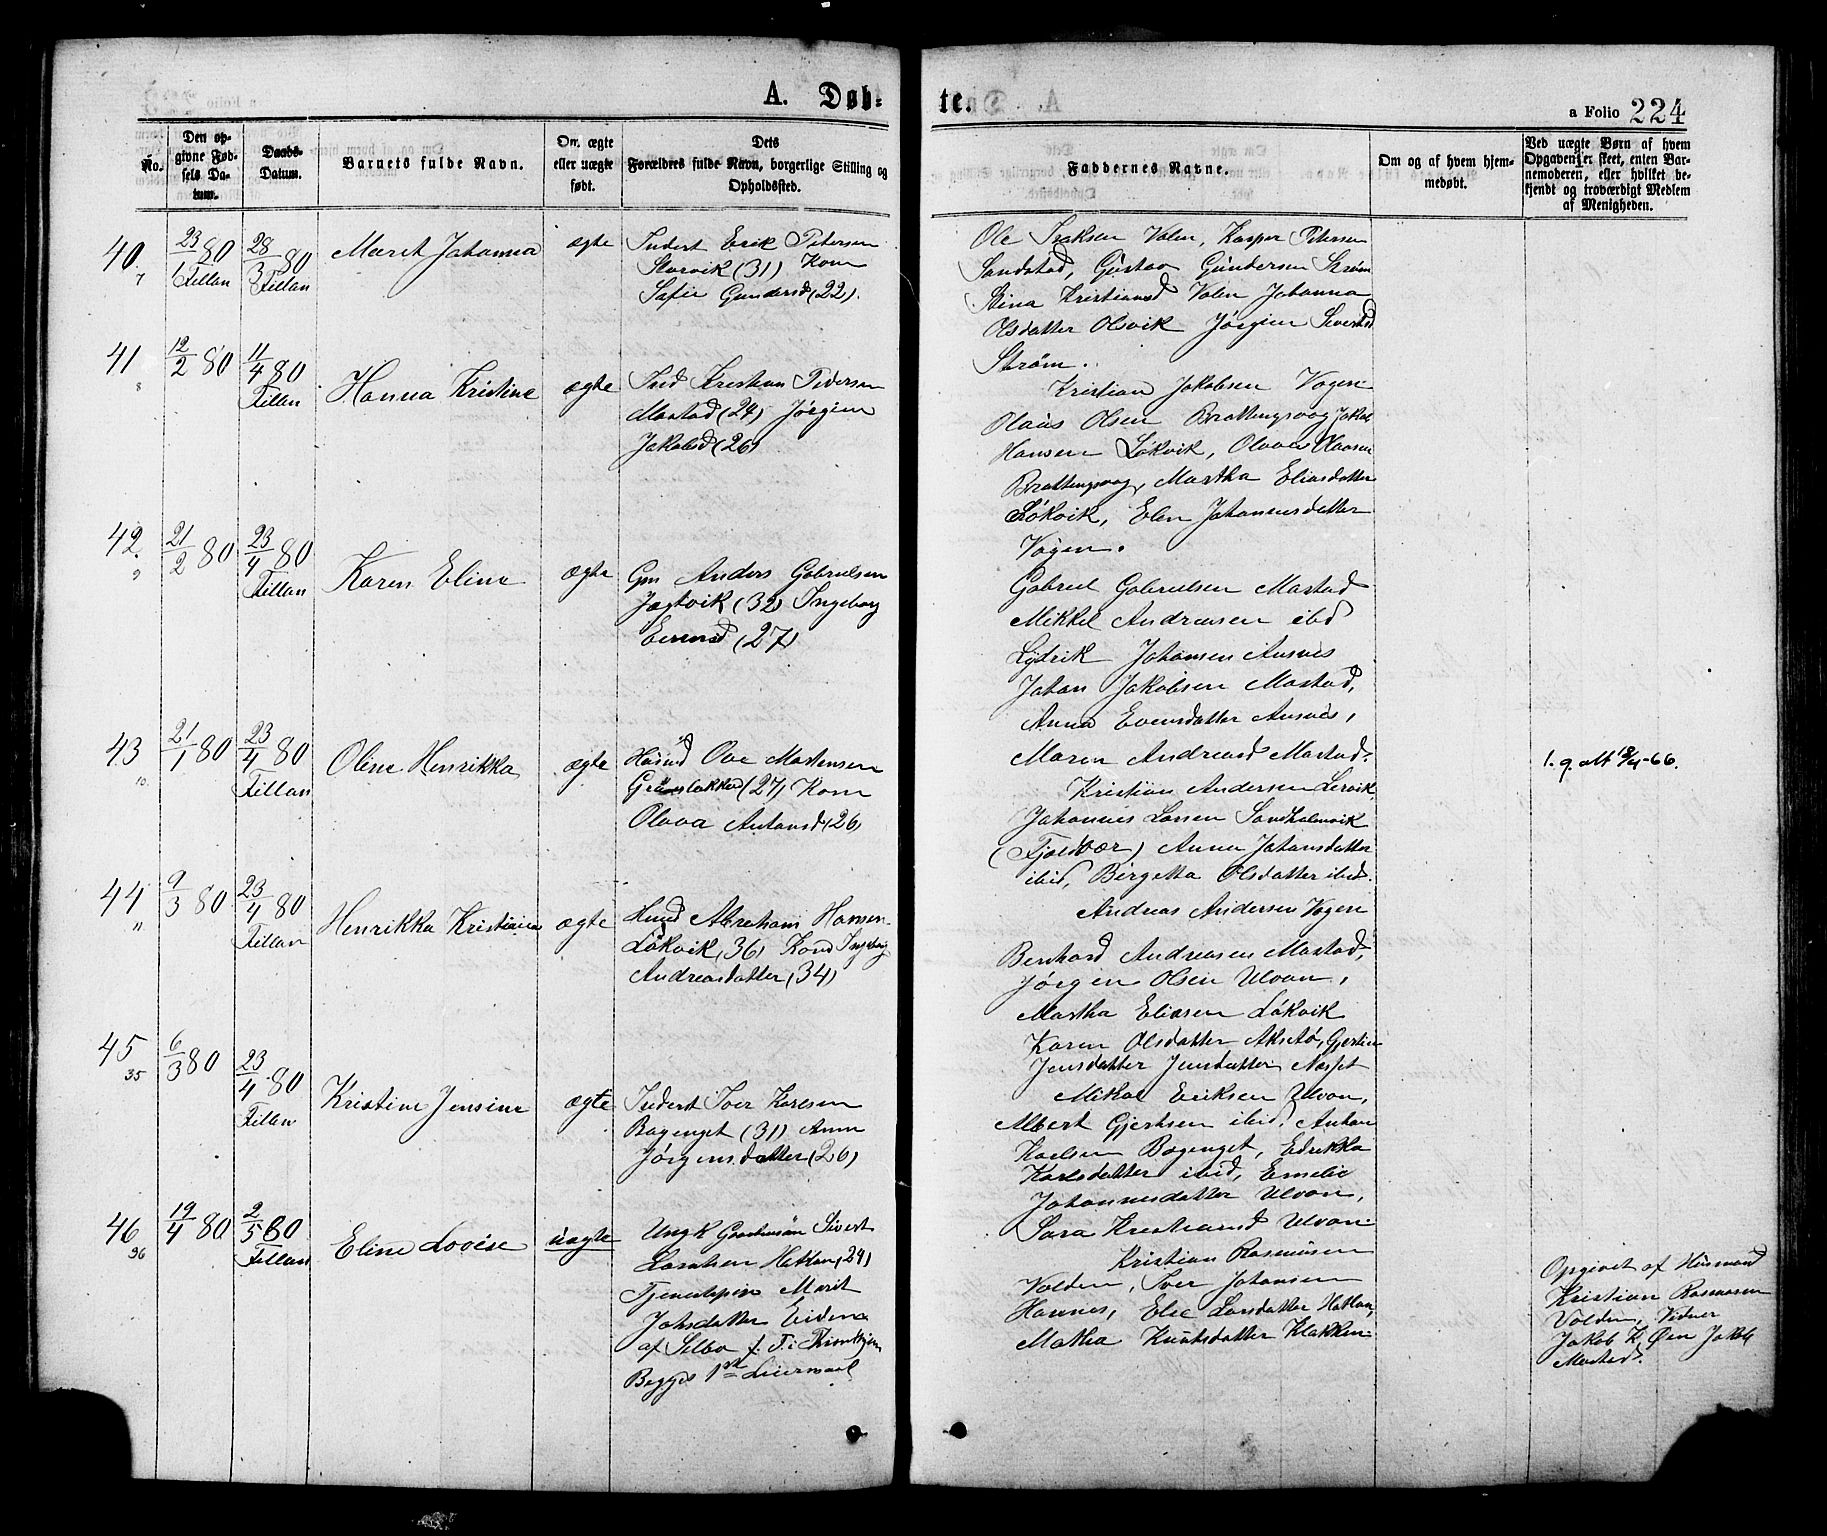 A. Døb-
te.
a Folio 224
No.
Den op-
givne Fød-
sels Da-
tum.
Daabs-
Datum.
Barnets fulde Navn.
Om ægte
eller uægte
født.
Dets
Forældres fulde Navn, borgerlige Stilling og
Opholdssted.
Faddernes Navne.
Om og af hvem hjem-
medøbt.
Ved uægte Børn af hvem
Opgaven er skeet, enten Bar-
nemoderen, eller hvilket be-
kjendt og troværdigt Medlem
af Menigheden.
40
7
23/1 80
Fillan
28/3 80
Fillan
Maret Johanna
ægte
Inderst Erik Petersen
Storvik (31) Kone
Sofie Gundersd (22).
Ole Isaksen Valen, Kasper Petersen
Sandstad, Gustav Gundersen Strøm
Stina Kristiansd Valen Johanna
Olsdatter Olsvik Jørgine Sivertsd
Strøm.
41
8
12/2 80
11/4 80
Fillan
Hanna Kristine
ægte
Ind Kristian Pedersen
Mastad (24) Jørgine
Jakobsd (26)
Kristian Jakobsen Vagen
Olaus Olsen Brattingsvag Jakob
Hansen Løkvik, Olava
Brattingsvag, Martha Eliasdatter
Løkvik, Elen Johannesdatter
Vagen.
42
9
21/2 80
23/4 80
Fillan
Karen Eline
ægte
Gm Anders Gabrielsen
Jagtvik (32) Ingeborg
Evensd (27)
Gabriel Gabrielsen Mastad
Mikkel Andreasen ibd
Lydrik Johansen Ansnes
Johan Jakobsen Mastad,
Anna Evensdatter Ansnes,
Maren Andreasd Mastad.
43
10.
21/1 80
23/4 80
Fillan
Oline Henrikka
ægte
Husmd Ove Mortensen
(27) Kone
Olava Antonsd (26)
Kristian Andersen Lervik,
Johannes Larsen Sandholmvik
(Fjeldvær) Anna Johansdatter
ibid, Birgetta Olsdatter ibid.
1. g. att 9/4-66.
44
11
9/3 80
23/4 80
Fillan
Henrikka Kristiana
ægte
Husmd Abraham Hansen
Løkvik (36) Kone Ingeborg
Andreasdatter (34)
Andreas Andersen Vagen
Bernhard Andreasen Mastad,
Jørgen Olsen Ulvan,
Martha Eliasen Løkvik
Karen Olsdatter Aksetø, Gjertine
Jensdatter Jensdatter Nesset
45
35
6/3 80
23/4 80
Fillan
Kristine Jensine
ægte
Inderst Iver Karlsen
Bagenget (31) Anne
Jørgensdatter (26)
Mikal Eriksen Ulvan,
Albert Gjertsen ibid. Anton
Karlsen Bagenget, Edrikka
Karlsdatter ibid, Emelie
Johannesdatter Ulvan,
Sara Kristiansd Ulvan.
46
36
19/4 80
2/5 80
Fillan
Eline Lovise
uægte
Ungk Gaardmsøn Sivert
Larsen Hatlan (29)
Tjenestepige Marit
Johsdatter Eidem
af Selbo f. T. i Trondhjem
Begges 1st Leiermaal
Kristian Rasmusen
Volden, Iver Johansen
Hannes, Else Larsdatter Hatlan,
Matha Knutsdatter Klakken.
Opgivet af Husmand
Kristian Rasmusen
Volden, Vidner
Jakob K. Øien Jakob
Mastad.